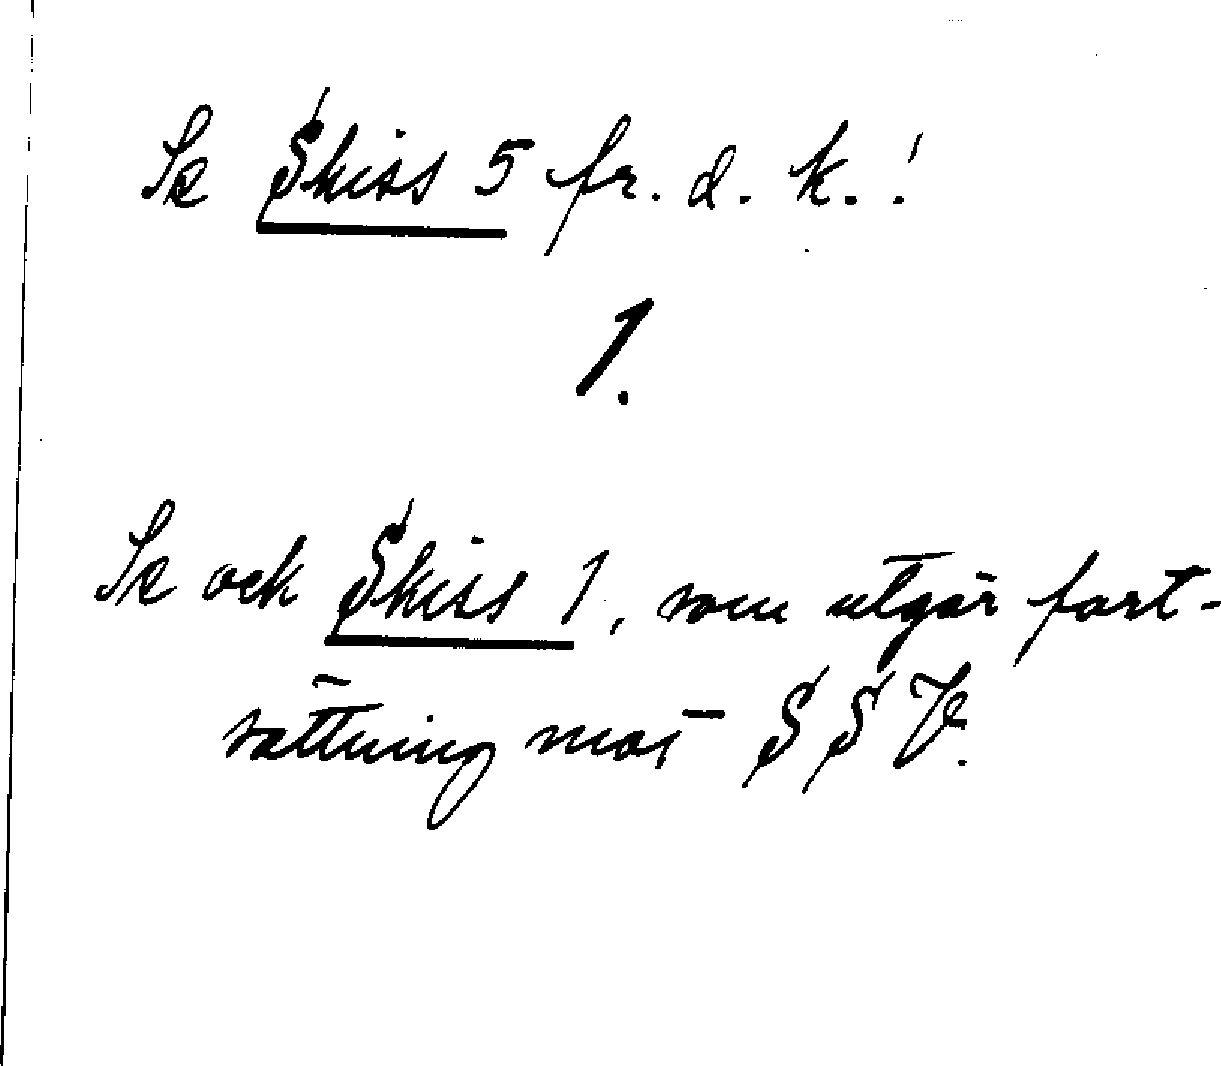 Se Skiss 5 fr. d. k.!
1.
Se ock Skiss 1, som utgör fort-
sättning mot S S V.